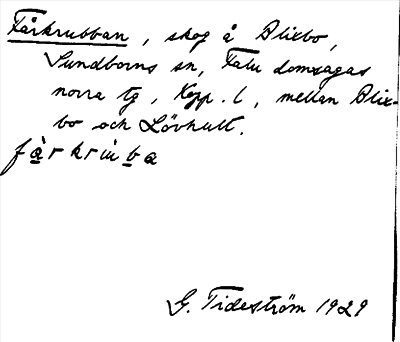 Fårkrubban, skog å Blixbo,
Sundborns sn, Falu domsagas
norra tg, Kopp. l, mellan Blix-
bo och Lövhult.
fàrkrùba
G. Tideström 1929